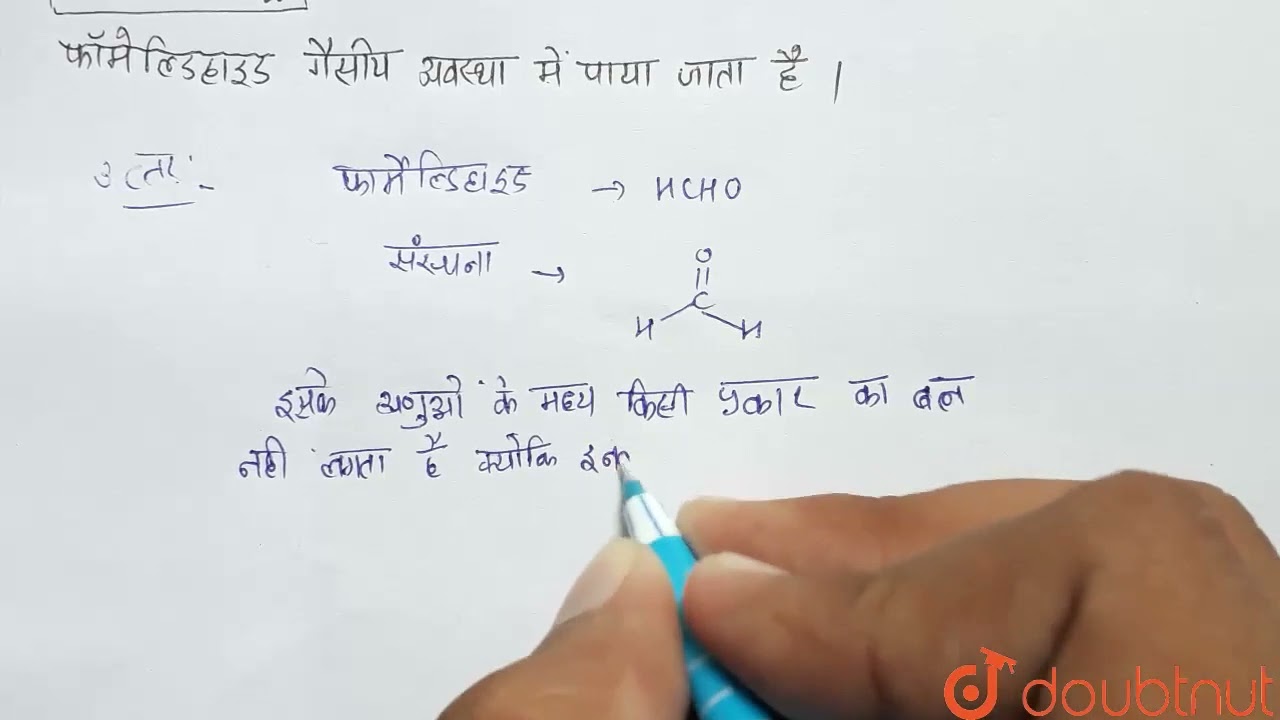 फॉर्मेल्डिहाइड गैसीय अवस्था में पाया जाता है ।
उत्तर:-
फार्मेल्डिहाइड → HCHO
संरचना →
O
||
C
H H
इसके अणुओं के मध्य किसी प्रकार का बल
नही लगता है क्योकि इन
doubtnut